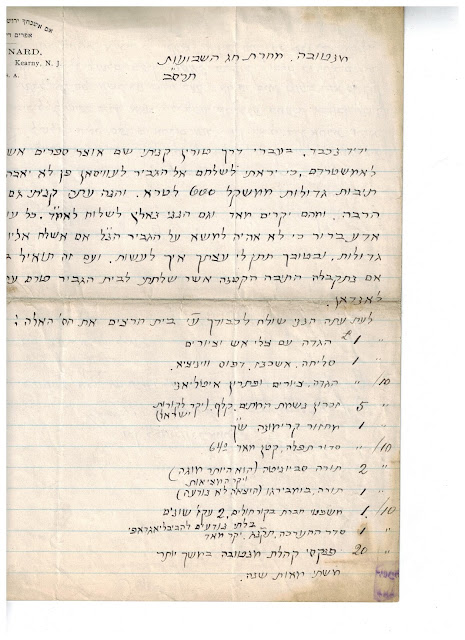 אם אשכחך ירוש
אפרים ד
NARD.
Kearny, N. J.
. A.
מנטובה, מחרת חג השבועות
תרס״ב
ידיד נכבד, בעברי דרך טורין קניתי שם אוצר ספרים אש
לאמשטרדם, כי יראתי לשלחם אל הגביר פן לא יאבה
תיבות גדולות ממשקל 600 לטרא. והנה עתה קניתי גם
הרבה, ומהם יקרים מאד וגם הנני נאלץ לשלוח לאמ״ד. כל
אדע ברור כי לא אהיה למשא על הגביר הנ״ל אם אשלח אליו
גדולות, ובטובך תתן לי עצתך איך לעשות. ועם זה תואיל
אם נתקבלה התיבה הקטנה אשר שלחתי לבית הגביר טרם
לאנדאן.
לעת עתה הנני שולח לכבודך ע״י בית הרצים את הס׳ האלה:
1 הגדה עם צלי אש וציורים
" 1 סליחה, אשכנז, דפוס וויניציא
10/ " הגדה, ציורים ופתרון איטליאני
" 5 זכרון נשמת המתים, קלף, (יקר לקורות ישראל)
" 1 מחזור קרימונה ש״ך
10/ " סדור תפלה, קטן מאד
" 2 תורה סביוניטה (הוא היותר מוגה)
ויקר המציאות
" 1 תורה, בומבירגו (הוצאה לא נודעה)
10/ 1 משפטי חברת 2 שונים
בלתי נודעים להביבליאגראפי
" 1 סדר המערכה, יקר מאד
" 20 פנקסי קהלת מנטובה במשך יותר
משתי מאות שנה.